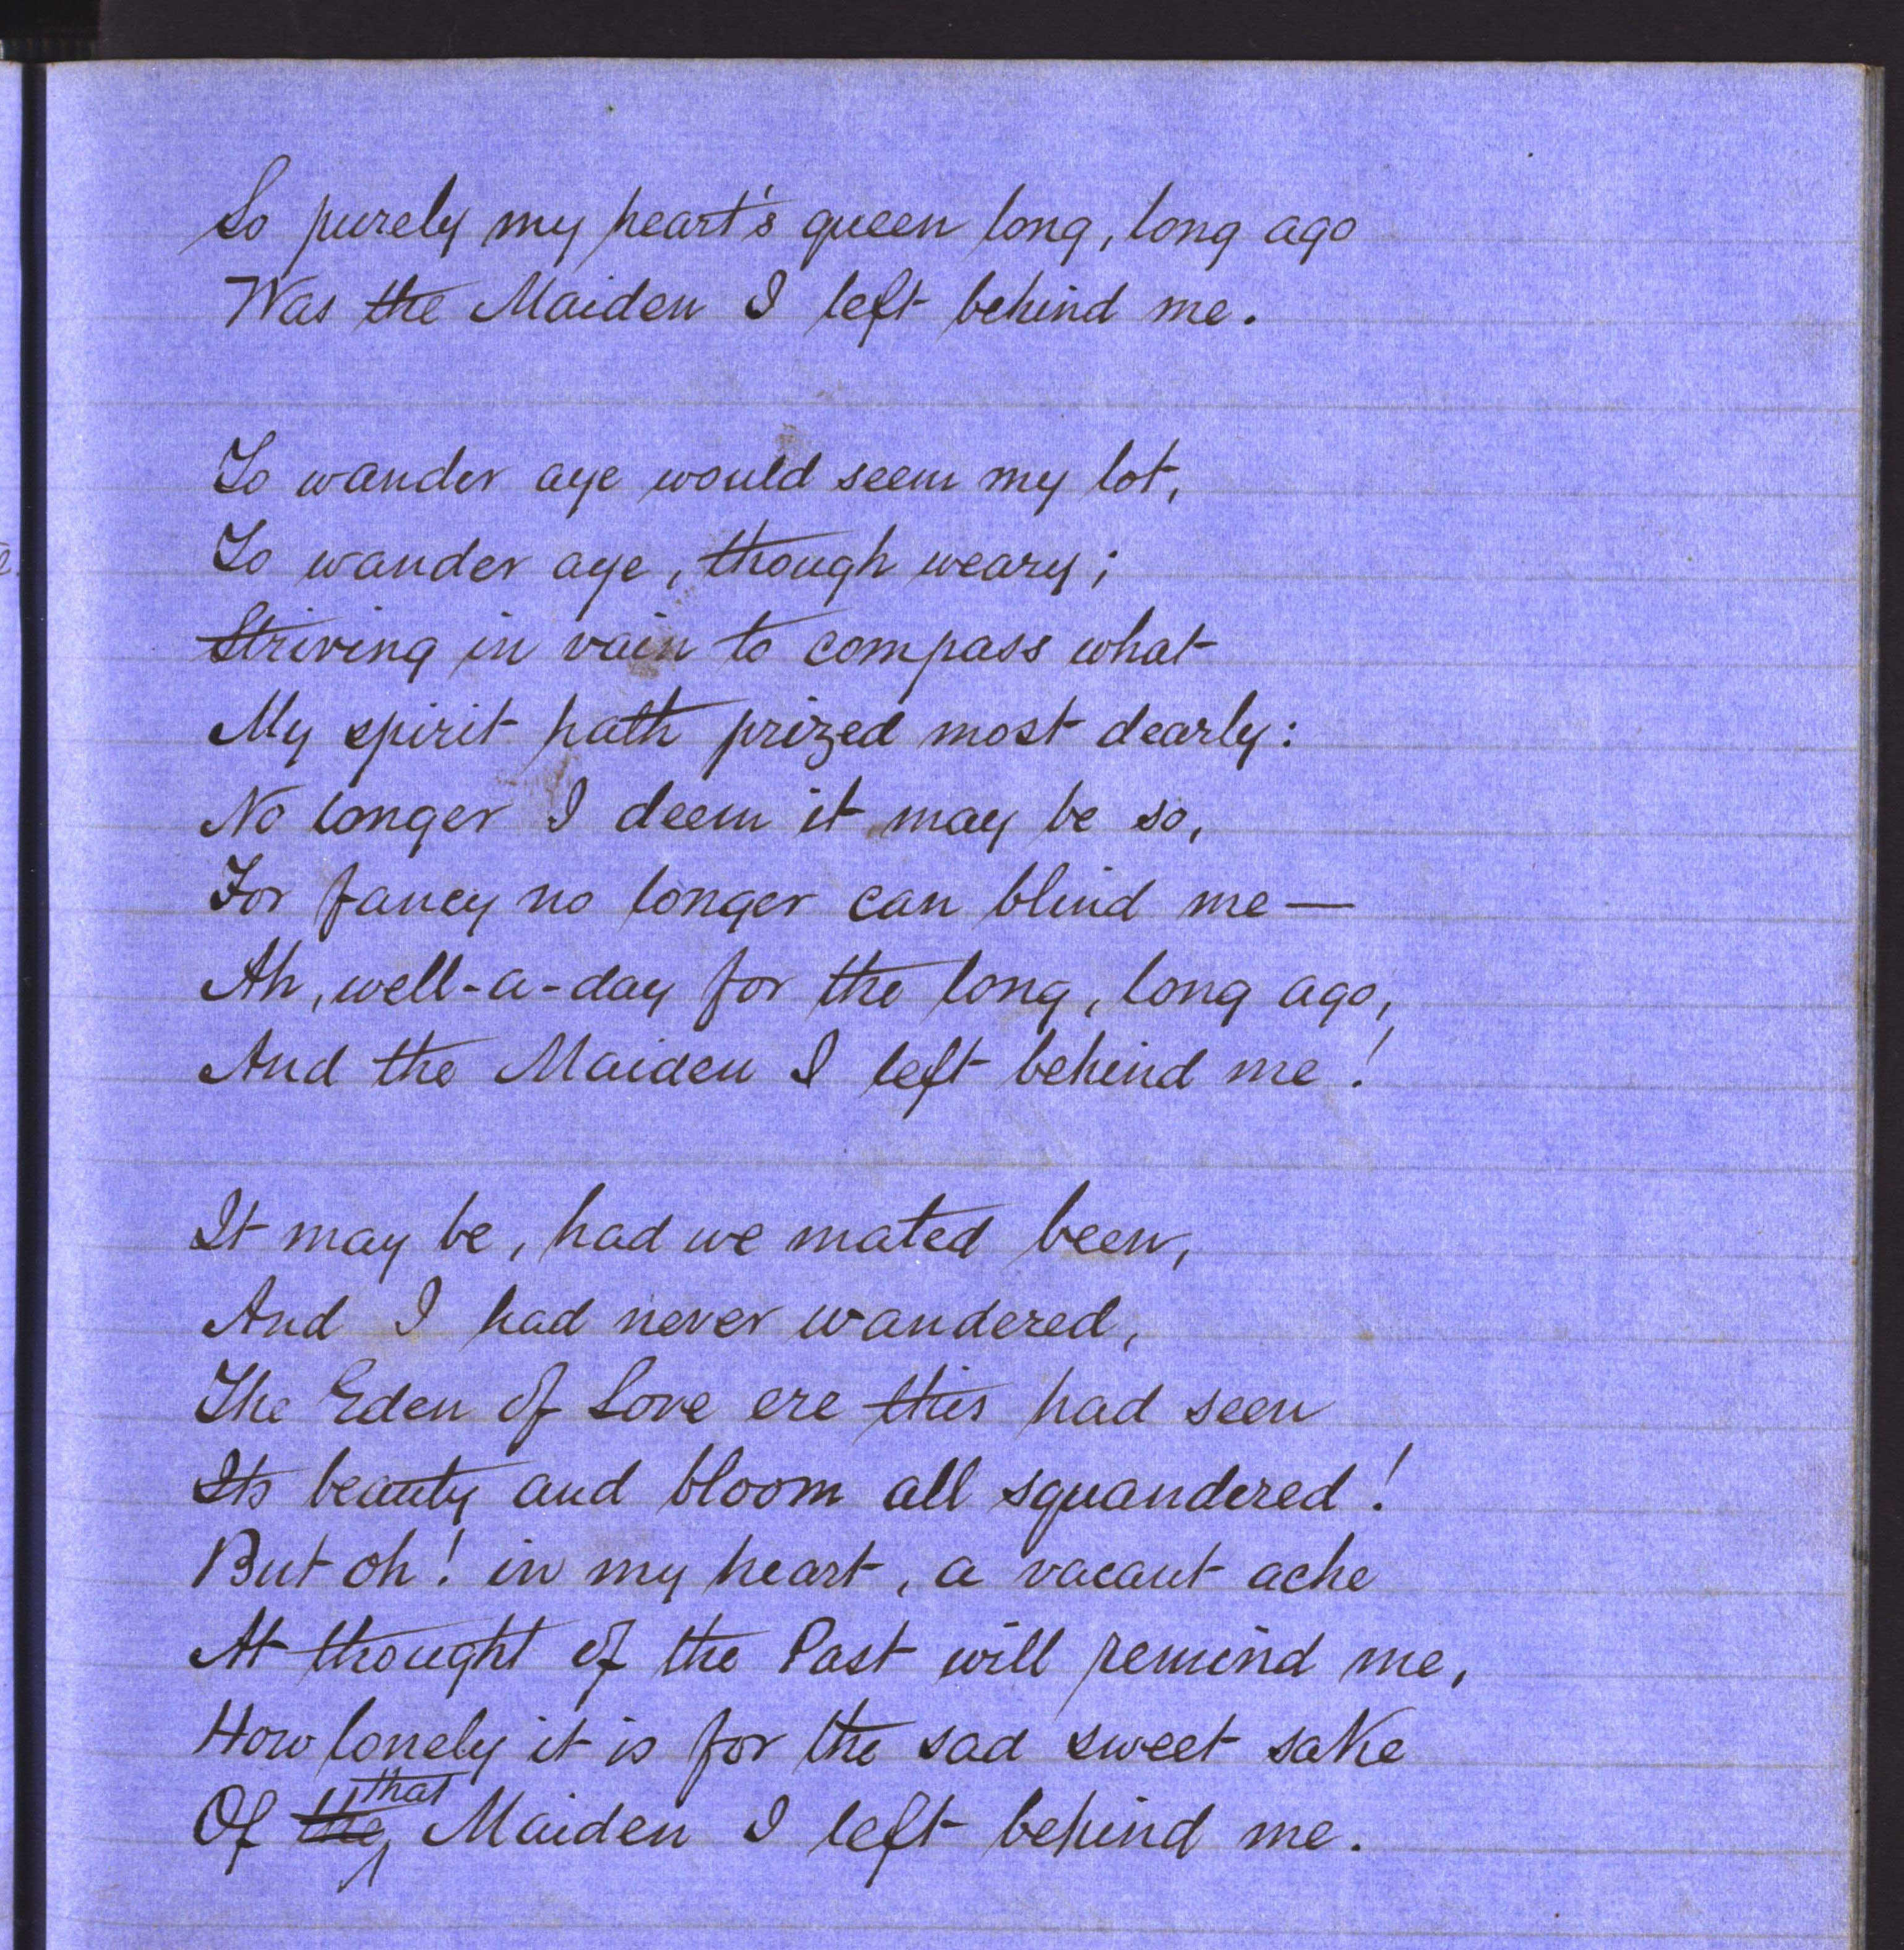 So purely my heart's queen long, long ago
Was the Maiden I left behind me.
To wander aye would seem my lot,
To wander aye, though weary;
Striving in vain to compass what
My spirit hath prized most dearly:
No longer I deem it may be so,
For fancy no longer can blind me —
Ah, well-a-day for the long, long ago,
And the Maiden I left behind me!
It may be, had we mated been,
And I had never wandered,
The Eden of Love ere this had seen
Its beauty and bloom all squandered!
But oh! in my heart, a vacant ache
At thought of the Past will remind me,
How lonely it is for the sad sweet sake
Of the that Maiden I left behind me.